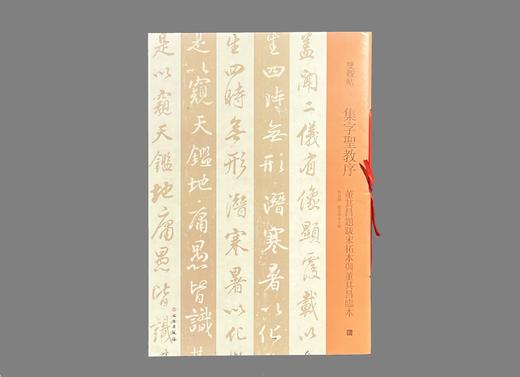 集字聖教序
董其昌題跋宋拓本與董其昌臨本
蓋聞二儀有像顯覆載以
生四時無形潛寒暑以化
生四時無形潛寒暑以化
是以窺天鑑地庸愚皆識其
是以窺天鑑地庸愚皆識
文物出版社